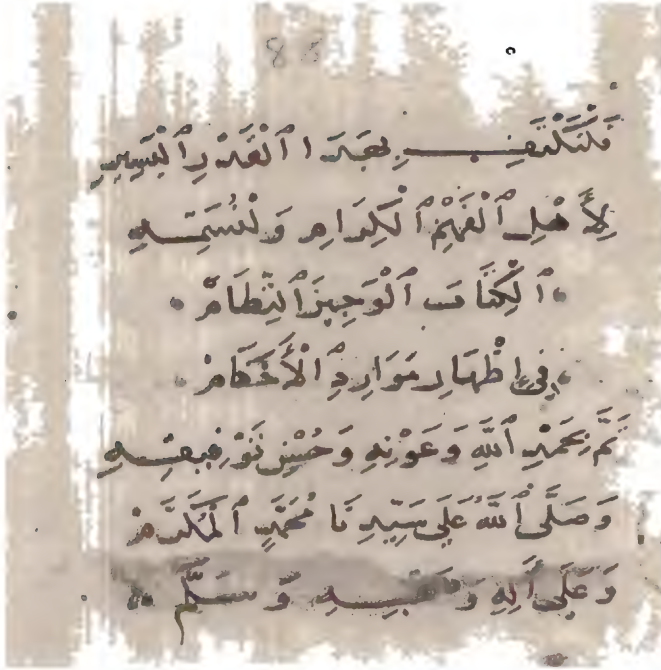 86
فَلْنَكْتَفِ بِهَذَا ٱلْقَدْرِ ٱلْيَسِيرِ
لِأَهْلِ ٱلْفَهْمِ ٱلْكِرَامِ وَلْنُسَمِّهِ
ٱلْكِتَابَ ٱلْوَجِيزَ ٱلنِّظَامْ
فِي إِظْهَارِ مَوَارِدِ ٱلْأَحْكَامْ
تَمَّ بِحَمْدِ ٱللَّهِ وَعَوْنِهِ وَحُسْنِ تَوْفِيقِهِ
وَصَلَّى ٱللَّهُ عَلَى سَيِّدِنَا مُحَمَّدٍ ٱلْمُكَرَّمْ
وَعَلَى آلِهِ وَصَحْبِهِ وَسَلَّمْ